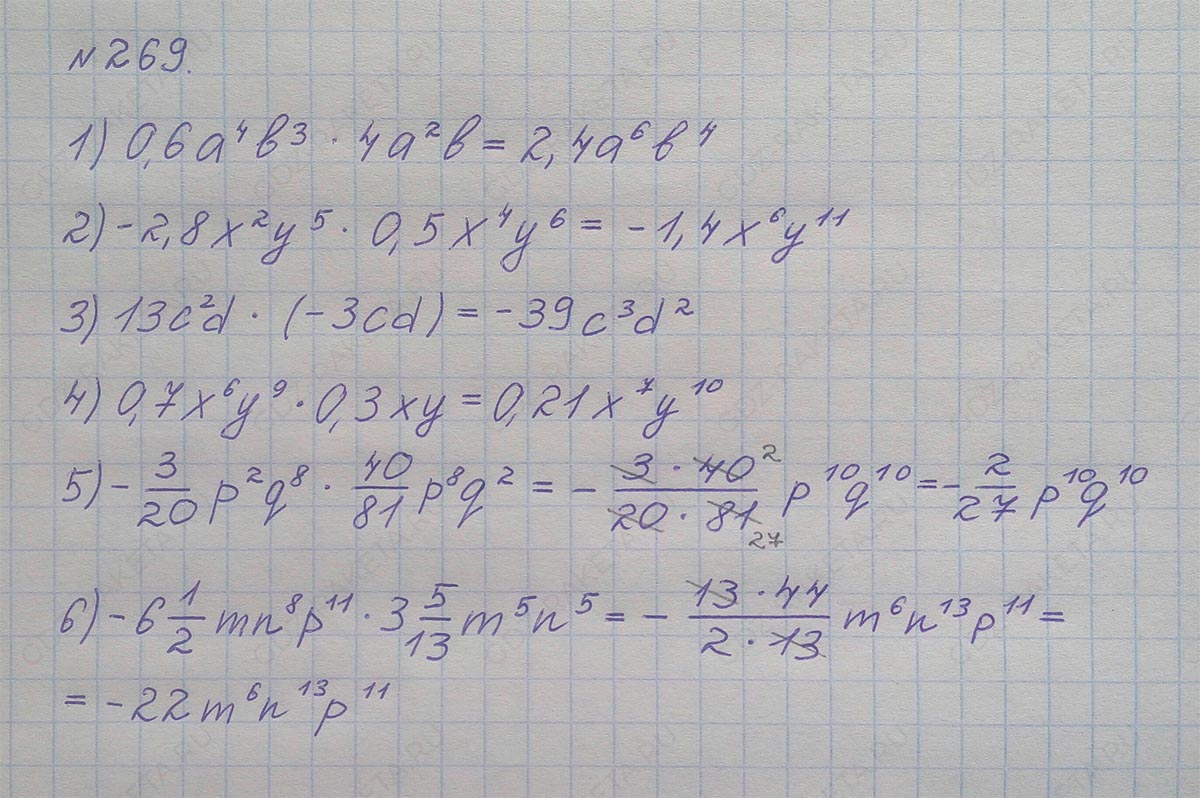 №269.
1) 0,6a⁴b³ · 4a²b = 2,4a⁶b⁴
2) -2,8x²y⁵ · 0,5x⁴y⁶ = -1,4x⁶y¹¹
3) 13c²d · (-3cd) = -39c³d²
4) 0,7x⁶y⁹ · 0,3xy = 0,21x⁷y¹⁰
5) - 3/20 p²q⁸ · 40/81 p⁸q² = - (3 · 40 ²)/(20 · 81 ₂₇) p¹⁰q¹⁰ = - 2/27 p¹⁰q¹⁰
6) -6 1/2 mn⁸p¹¹ · 3 5/13 m⁵n⁵ = - (13 · 44)/(2 · 13) m⁶n¹³p¹¹ =
= -22m⁶n¹³p¹¹